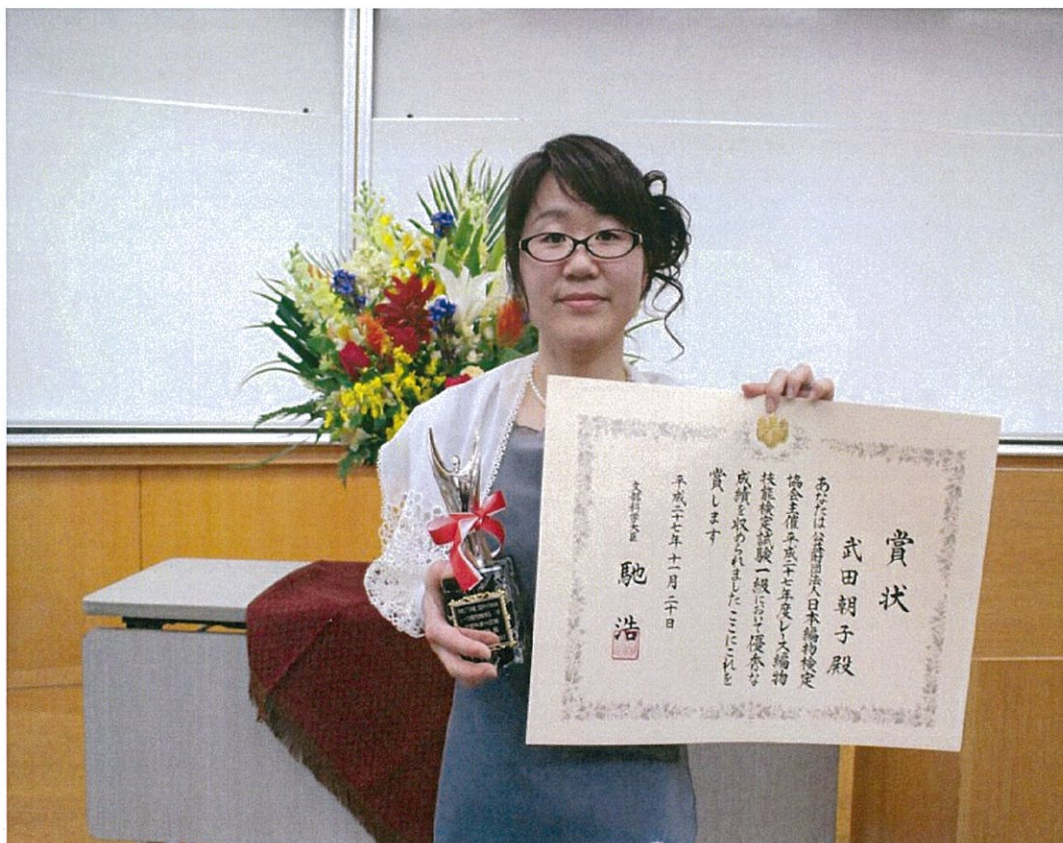 賞状
武田朝子殿
あなたは公益財団法人日本編物検定
協会主催平成二十七年度レース編物
技能検定試験一級において優秀な
成績を収められましたここにこれを
賞します
平成二十七年十一月二十日
文部科学大臣
馳浩